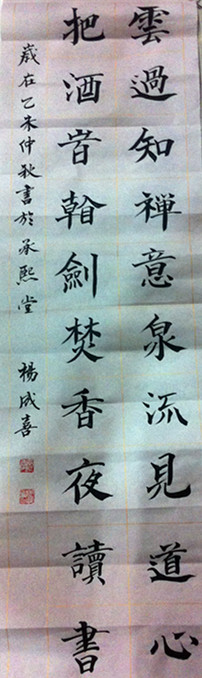 雲過知禪意泉流見道心
把酒旹劍焚香夜讀書
歲在乙未仲秋書於承熙堂 楊成喜